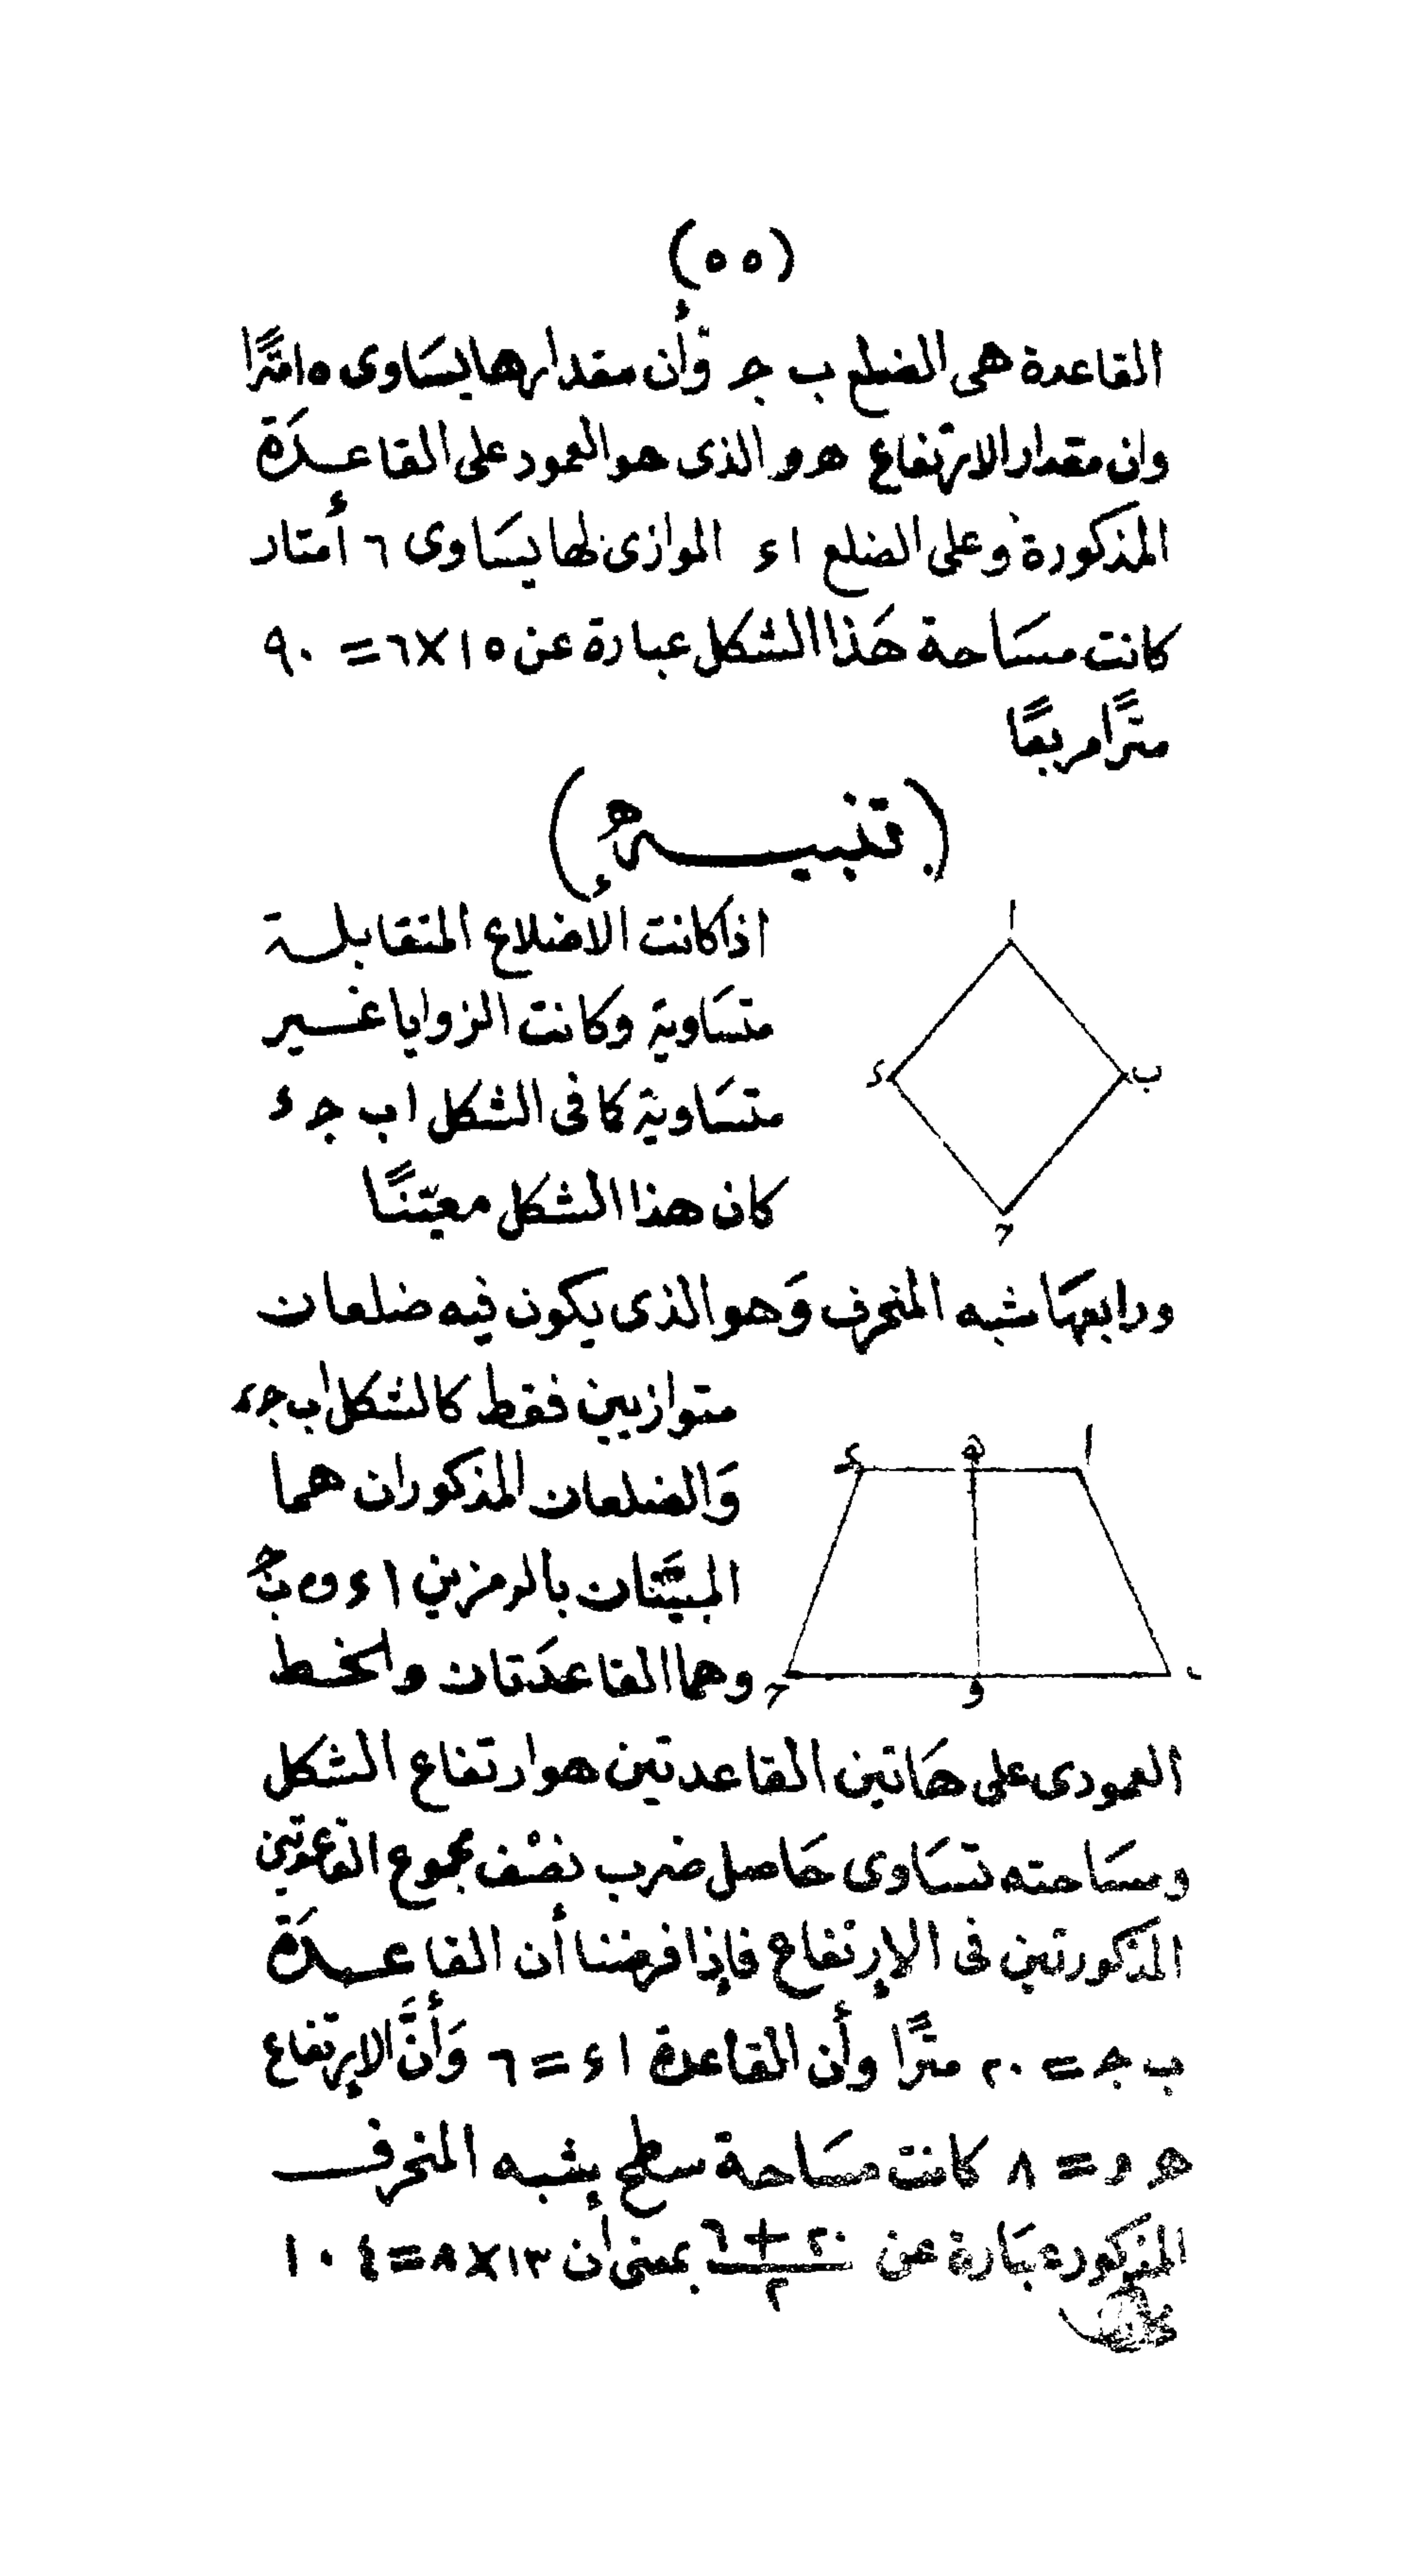 (٥٥)
القاعدة هى الضلع ب جـ وأن مقدارها يسَاوى ١٥ مترًا
وان مقدار الارتفاع هـ و الذى هو العمود على القاعـدَة
المذكورة وعلى الضلع ا ء الموازى لها يسَاوى ٦ أمتار
كانت مسَاحة هَذا الشكل عبارة عن ١٥×٦ = ٩٠
مترًا مربعًا
(تنبيـــه)
اذا كانت الأضلاع المتقابلة
متسَاوية وكانت الزوايا غـير
متسَاوية كما فى الشكل ا ب جـ ء
كان هذا الشكل معيّنًا
ا
ب
ء
حـ
ورابعهَا شبه المنحرف وَهو الذى يكون فيه ضلعان
متوازيين فقط كالشكل ا ب جـ ء
وَالضلعان المذكوران هما
المبيَّنان بالرمزين ا ء و ب جـ
وهما القاعدَتان والخط
ا
هـ
ء
حـ
و
ب
العمودى على هَاتين القاعدتين هو ارتفاع الشكل
ومسَاحته تسَاوى حَاصل ضرب نصْف مجموع القاعدتين
المذكورتين فى الإرتفاع فإذا فرضنا أن القاعـدَة
ب جـ = ٢٠ مترًا وأن القاعدة ا ء = ٦ وَأنَّ الإرتفاع
هـ و = ٨ كانت مسَاحة سطح شبه المنحرف
المذكور عبَارة عن ٢٠ + ٦ / ٢ بمعنى أن ١٣×٨ = ١٠٤